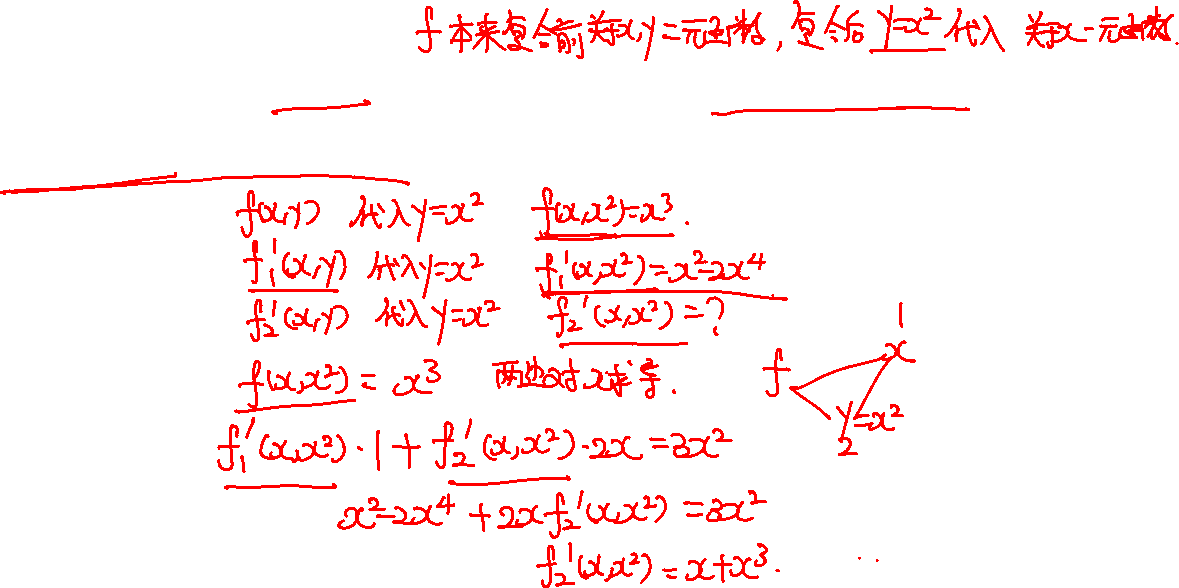 f 本来复合前关于x,y二元函数, 复合后 y=x² 代入 关于x一元函数.
f(x,y) 代入y=x² f(x,x²)=x³.
f₁'(x,y) 代入y=x² f₁'(x,x²)=x²-2x⁴
f₂'(x,y) 代入y=x² f₂'(x,x²)=?
f(x,x²)=x³ 两边对x求导.
f₁'(x,x²)·1+f₂'(x,x²)·2x=3x²
x²-2x⁴+2xf₂'(x,x²)=3x²
f₂'(x,x²)=x+x³.
1
f x
y=x²
2